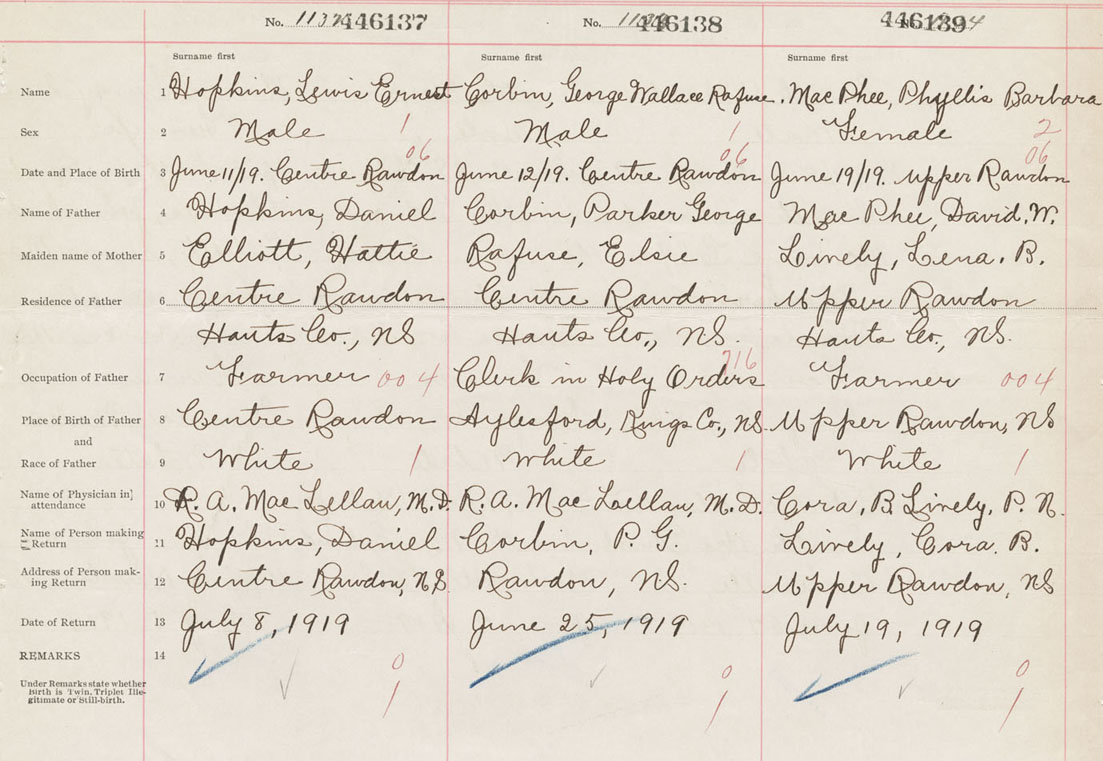 No. 446137 No. 446138 446139
Surname first Surname first Surname first
Name 1 Hopkins, Lewis Ernest Corbin, George Wallace Rafuse. Mac Phee, Phyllis Barbara
Sex 2 Male 1 Male 1 Female 2
06 06 06
Date and Place of Birth 3 June 11/19. Centre Rawdon June 12/19. Centre Rawdon June 19/19. Upper Rawdon
Name of Father 4 Hopkins, Daniel Corbin, Parker George Mac Phee, David, W.
Maiden name of Mother 5 Elliott, Hattie Rafuse, Elsie Lively, Lena. B.
Residence of Father 6 Centre Rawdon Centre Rawdon Upper Rawdon
Hants Co., NS Hants Co., NS. Hants Co., NS.
716
Occupation of Father 7 Farmer 004 Clerk in Holy Orders Farmer 004
Place of Birth of Father 8 Centre Rawdon Aylesford, Kings Co., NS. Upper Rawdon, NS
and
Race of Father 9 White 1 White 1 White 1
Name of Physician in
attendance 10 R. A. Mac Lellan, M.D. R. A. Mac Lellan, M.D. Cora. B. Lively, P. N.
Name of Person making
Return 11 Hopkins, Daniel Corbin, P. G. Lively, Cora. B.
Address of Person mak-
ing Return 12 Centre Rawdon, NS. Rawdon, NS. Upper Rawdon, NS
Date of Return 13 July 8, 1919 June 25, 1919 July 19, 1919
REMARKS 14
0 0 0
Under Remarks state whether
Birth is Twin, Triplet Ille-
gitimate or Still-birth.
1 1 1